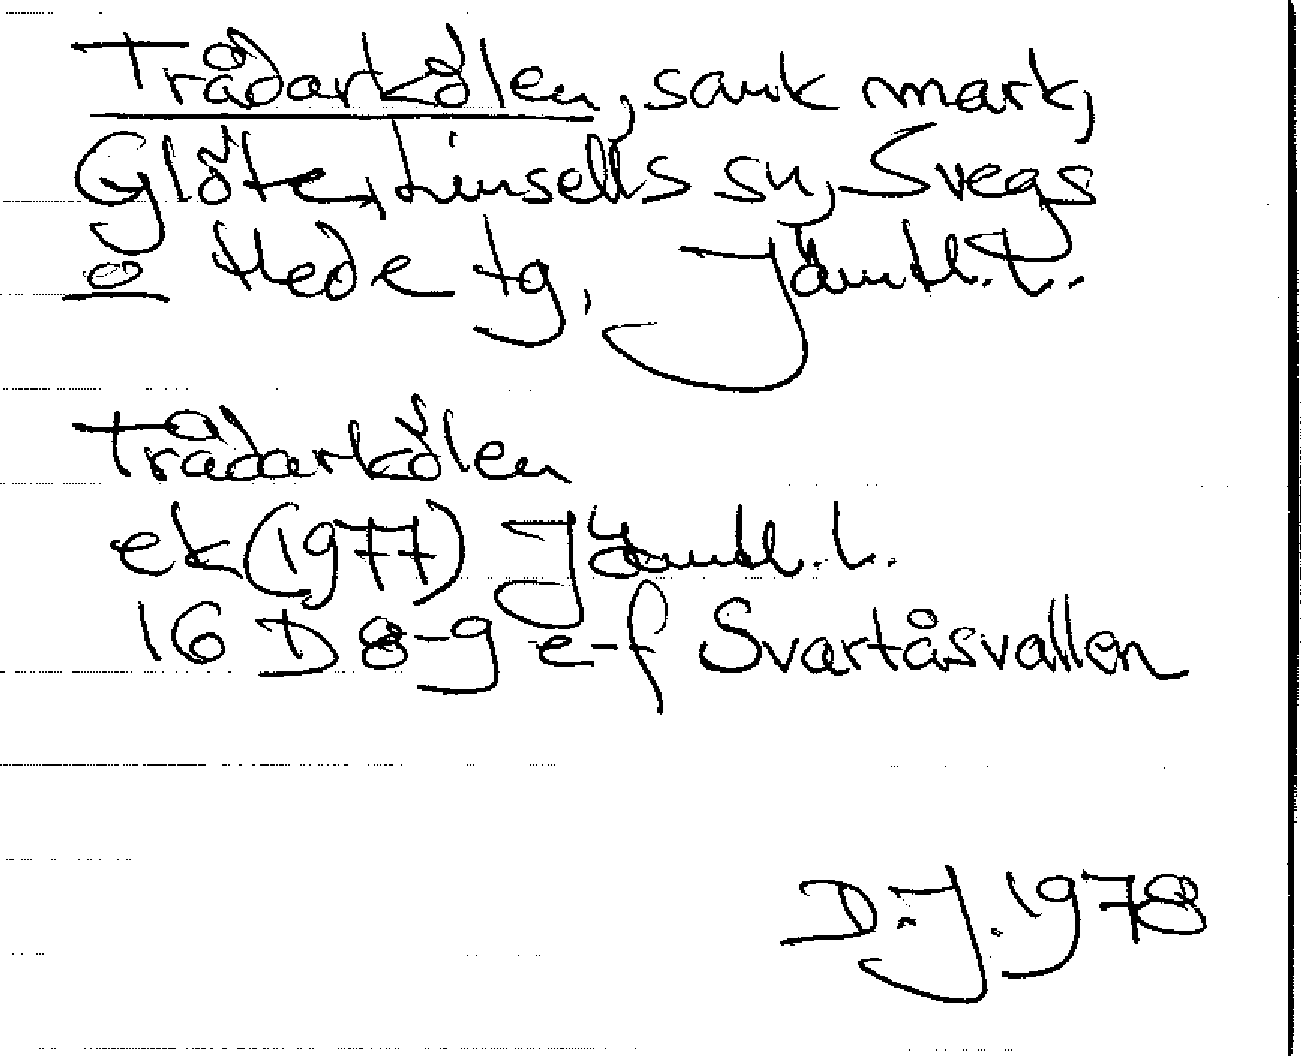 Trådarkölen, sank mark,
Glöte, Linsells sn, Svegs
o Hede tg, Jämtl.L.
Trådarkölen
ek(1977) Jämtl.L.
16 D 8-9 e-f Svartåsvallen
D.J. 1978